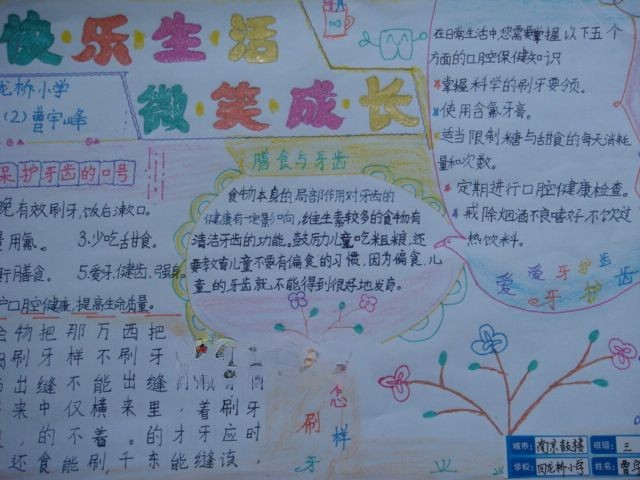 快乐生活
微笑成长
龙桥小学
(2)曹宇峰
保护牙齿的口号
有效刷牙,饭后漱口。
用氟。 3.少吃甜食。
膳食。 5.爱牙、健齿、强身。
口腔健康,提高生命质量。
物把那万西把
刷牙样不刷牙
出缝不能出缝
来中仅横来里,着刷牙
,的不着。的才牙应时
还食能刷,千东能缝该,
膳食与牙齿
食物本身的局部作用对牙齿的
健康有一定影响,纤维素较多的食物有
清洁牙齿的功能。鼓励儿童吃粗粮,还
要教育儿童不要有偏食的习惯,因为偏食,儿
童的牙齿就不能得到很好地发育。
怎样
刷牙
在日常生活中,您需要掌握以下五个
方面的口腔保健知识
掌握科学的刷牙要领。
使用含氟牙膏。
适当限制糖与甜食的每天消耗
量和次数。
定期进行口腔健康检查。
戒除烟酒不良嗜好不饮过
热饮料。
爱牙护齿
爱牙护齿
城市: 南京鼓楼 班级: 三
学校: 回龙桥小学 姓名: 曹宇